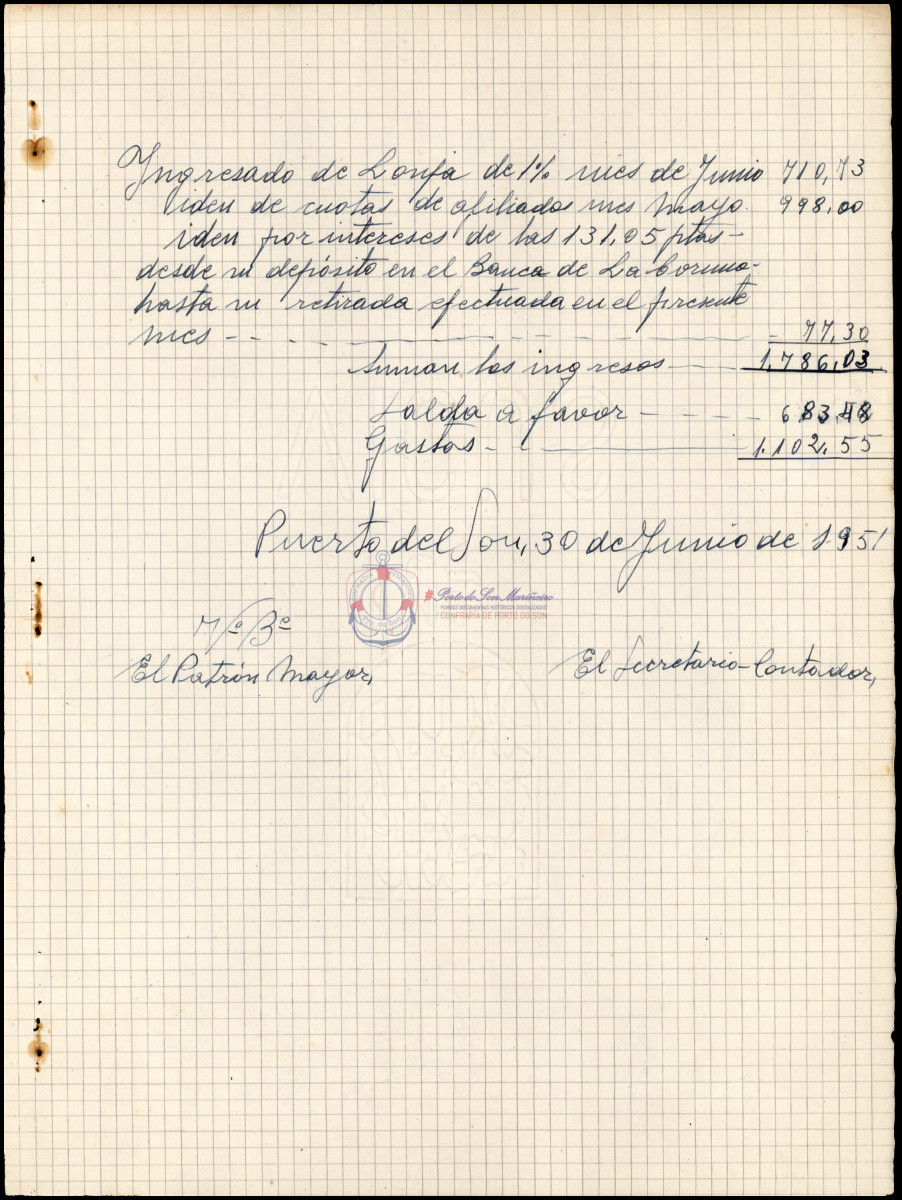 Yngresado de Lonja de 1% mes de Junio 710,73
iden de cuotas de afiliados mes Mayo. 998,00
iden por intereses de las 131,05 ptas-
desde su depósito en el Banca de La Coruna-
hasta su retirada efectuada en el presente
mes - - - - - - 77,30
Suman los ingresos 1.786,03
Saldo a favor - - - - 683,48
Gastos - - 1.102,55
Puerto del Son, 30 de Junio de 1951
Porto do Son Mariñeiro
FONDOS DOCUMENTAIS HISTÓRICOS DIXITALIZADOS
CONFRARÍA DE PORTO DO SON
Vº Bº
El Patrón Mayor,
El Secretario-Contador,